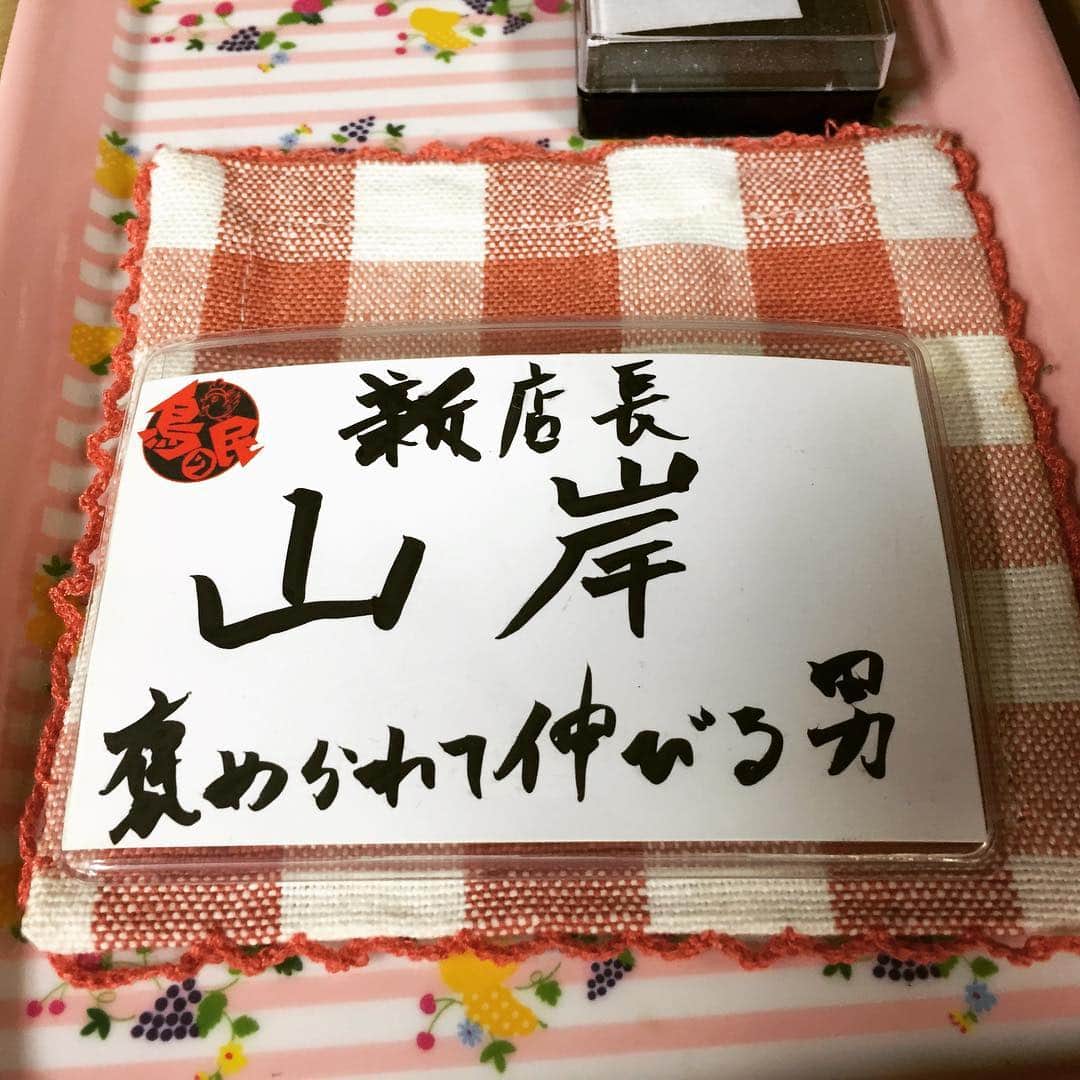 鳥の民
新店長
山岸
褒められて伸びる男